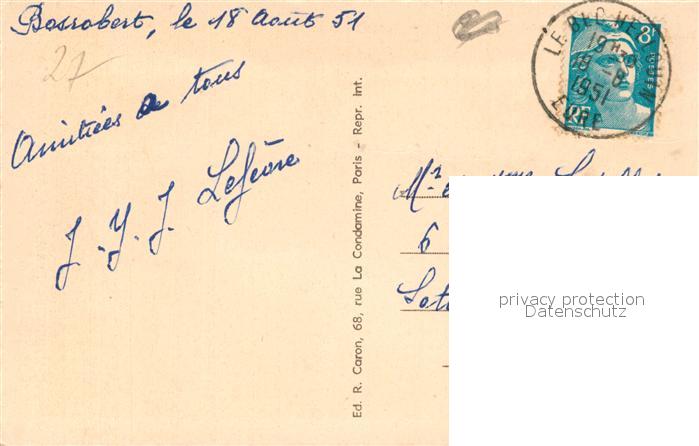 Bosrobert, le 18 Août 51
27
Amitiées de tous
J. Y. J. Lefèvre
Ed. R. Caron, 68, rue La Condamine, Paris - Repr. int.
8F
POSTES
RF
LE BEC-HELLOUIN
19H
18-8
1951
EURE
Mr et Mme
6
privacy protection
Datenschutz